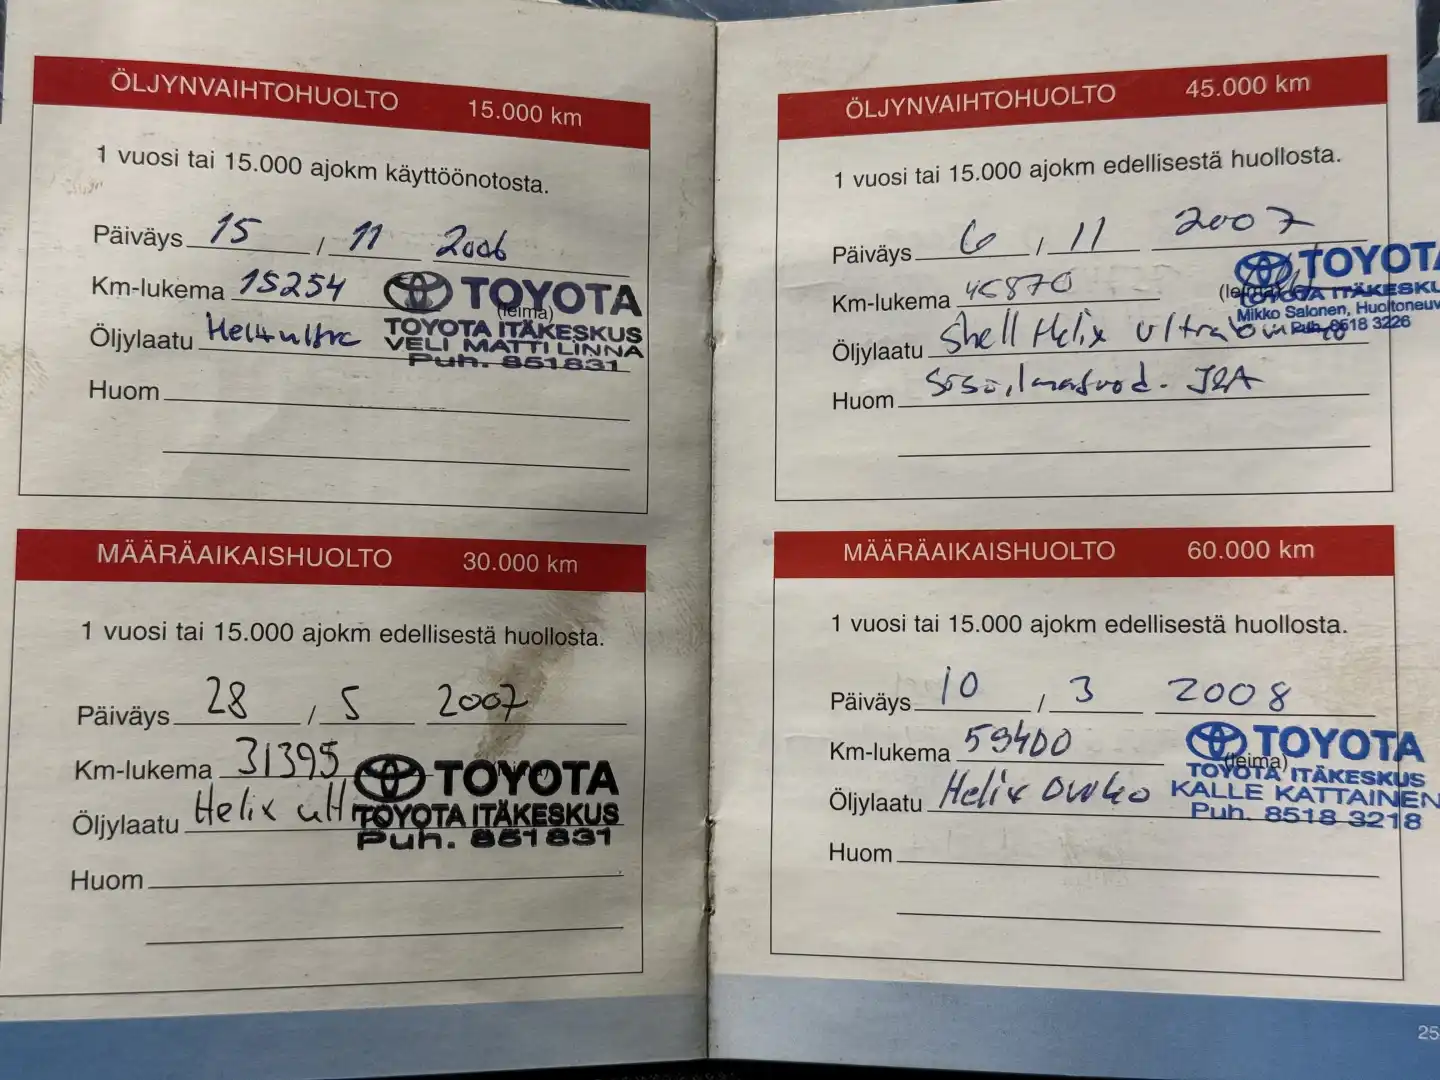 ÖLJYNVAIHTOHUOLTO 15.000 km
1 vuosi tai 15.000 ajokm käyttöönotosta.
Päiväys 15 / 11 2006
Km-lukema 15254
(leima)
TOYOTA
TOYOTA ITÄKESKUS
VELI MATTI LINNA
Puh. 851831
Öljylaatu
Huom
MÄÄRÄAIKAISHUOLTO 30.000 km
1 vuosi tai 15.000 ajokm edellisestä huollosta.
Päiväys 28 / 5 2007
Km-lukema 31395
TOYOTA
TOYOTA ITÄKESKUS
Puh. 851831
Öljylaatu Helix
Huom
ÖLJYNVAIHTOHUOLTO 45.000 km
1 vuosi tai 15.000 ajokm edellisestä huollosta.
Päiväys 6 / 11 2007
Km-lukema 45870
(leima)
TOYOTA
TOYOTA ITÄKESKU
Mikko Salonen, Huoltoneuv
Puh. 8518 3226
Öljylaatu Shell Helix Ultra
Huom
MÄÄRÄAIKAISHUOLTO 60.000 km
1 vuosi tai 15.000 ajokm edellisestä huollosta.
Päiväys 10 / 3 2008
Km-lukema 59400
(leima)
TOYOTA
TOYOTA ITÄKESKUS
KALLE KATTAINEN
Puh. 8518 3218
Öljylaatu Helix
Huom
25